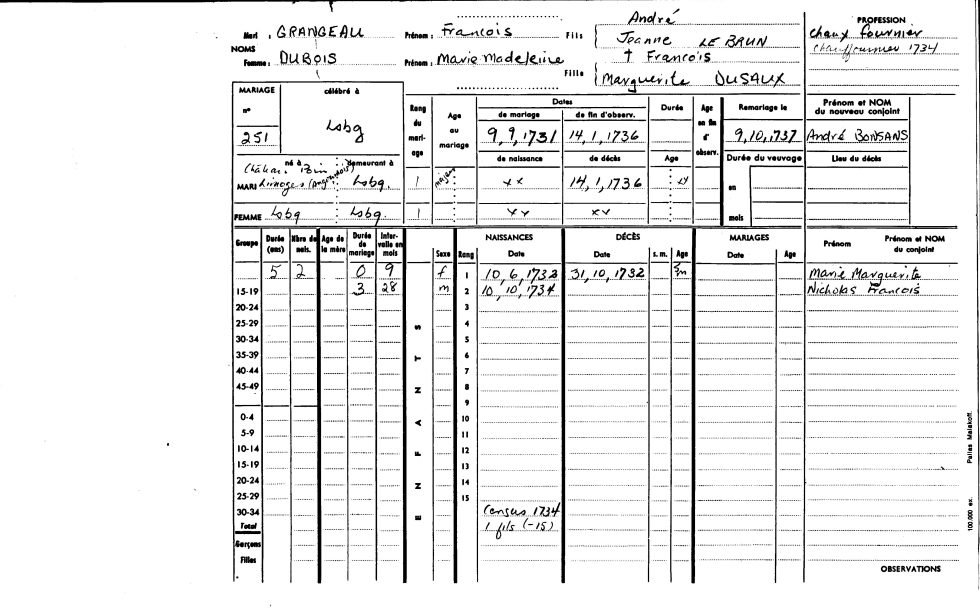 Mari : GRANGEAU Prénom : Francois Fils André
Jeanne LE BRUN
NOMS
Femme : DUBOIS Prénom : Marie Madeleine Fille † Francois
Marguerite DUSAUX
PROFESSION
chaux fournier
chauffournier 1734
MARIAGE célébré à
n°
251 Lsbg
Rang du mari-age Age au mariage Dates Durée Age en fin d'observ. Remariage le Prénom et NOM du nouveau conjoint
de mariage de fin d'observ.
9,9,1731 14,1,1736 9,10,1737 André BONSANS
de naissance de décès Age Durée du veuvage Lieu du décès
né à demeurant à
MARI Limoges Lsbg. 1 majeur xx 14,1,1736 xx en
mois
FEMME Lsbg Lsbg. 1 xx xx
Groupe Durée (ans) Nbre de nais. Age de la mère Durée de mariage Inter-valle en mois Sexe Rang NAISSANCES Date DÉCÈS Date s. m. Age MARIAGES Date Age Prénom Prénom et NOM du conjoint
5 2 0 9 f 1 10,6,1732 31,10,1732 Marie Marguerite
15-19 3 28 m 2 10,10,1734 Nicholas Francois
20-24 3
25-29 4
30-34 5
35-39 6
40-44 7
45-49 8
9
0-4 10
5-9 11
10-14 12
15-19 13
20-24 14
25-29 15
30-34 Census 1734
Total 1 fils (-15)
Garçons
Filles
ENFANTS
OBSERVATIONS
100.000 ex. Pallas Malakoff.